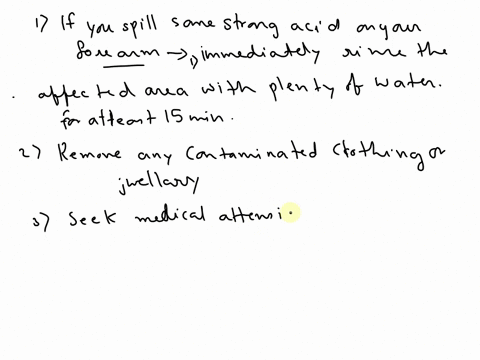 1) If you spill some strong acid on your
forearm → 1) immediately rinse the
affected area with plenty of water.
for atleast 15 min.
2) Remove any contaminated clothing or
jwellary
3) Seek medical attensi